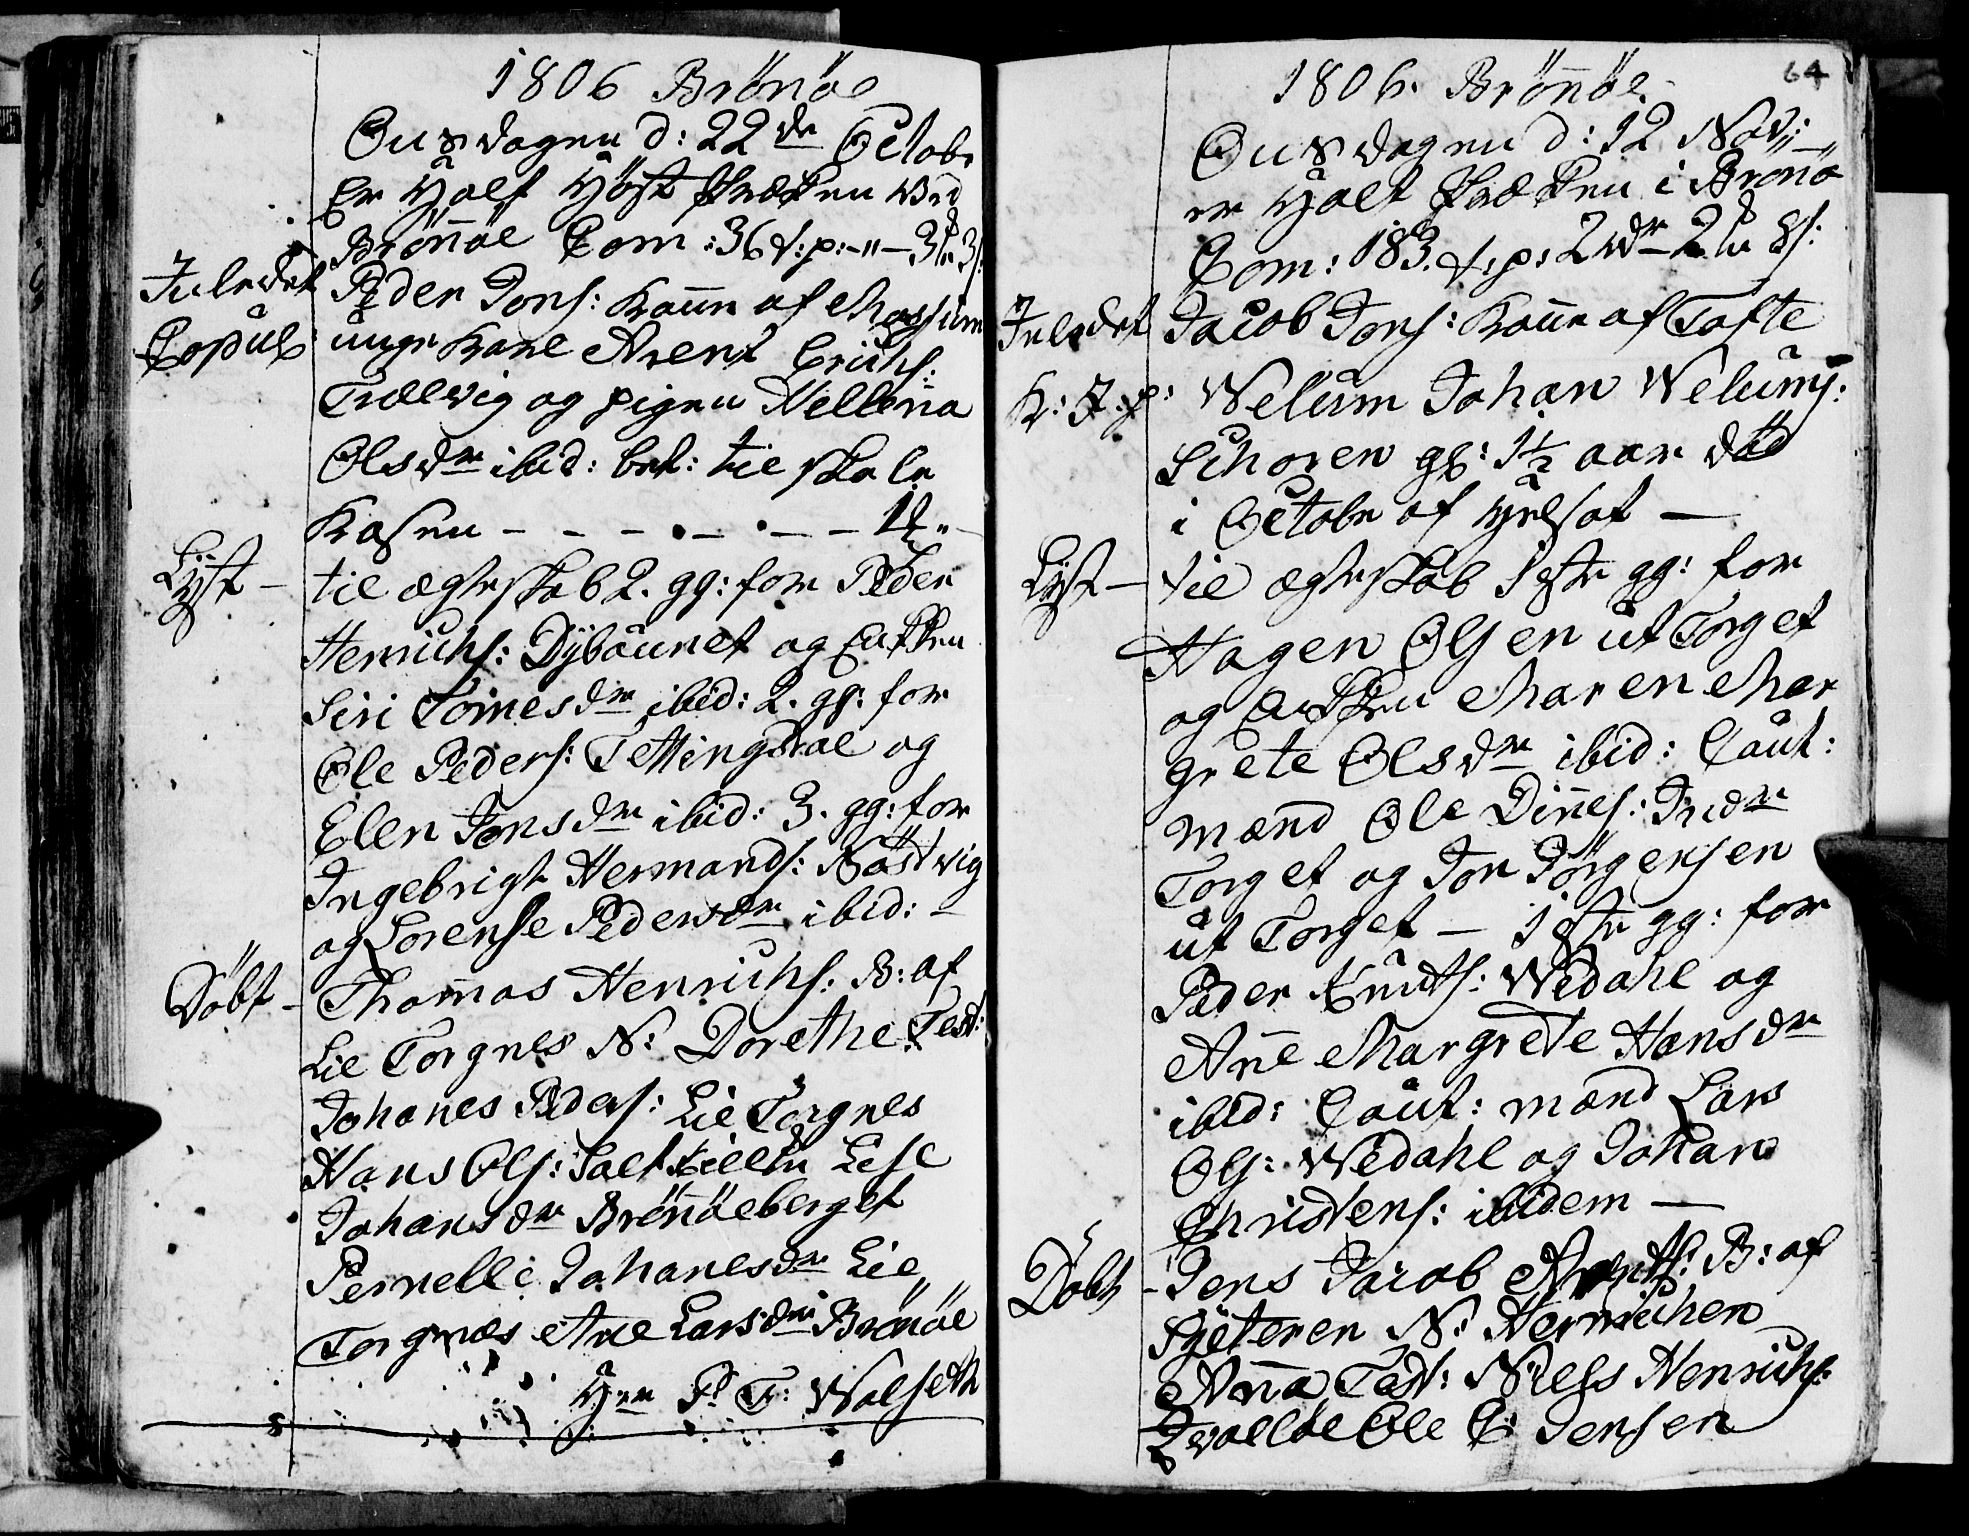 1806 Brönöe
Onsdagen d: 22de Octobr
Er Holt Höst Præken ved
Brönöe Com: 36 f: p: - " - 3 3 s:
Juledet Peder Jons: Kone af Mossem
Copul: unge Karl Arent Erichs:
Trælvig og pigen Hellena
Olsdr ibid: bet: til Skole
Kasen - - - - - - - 1
Lyst - til ægteskab 2. gg: for Peder
Henrichs: Dybaunet og Enken
Siri Tomesdr ibid: 2. gg: for
Ole Peders: Tettingdal og
Elen Jonsdr ibid: 3. gg: for
Ingebrigt Hermands: Nöstvig
og Lorense Pedersdr ibid: -
Döbt - Thomas Henrichs: B: af
Lie Torgnes N: Dorethe Test:
Johanes Peders: Lie Torgnes
Hans Ols: Salt Lise
Johansdr Brönöeberget
Pernelle Johanesdr Lie
Torgnæs Ane Larsdr Brönöe
Hrr P: T: Wolseth
64
1806. Brönöe
Onsdagen d: 12 Nov:
er Holt Præken i Brönö
Com: 183. f: p: 2 2 8 s:
Juledet Jacob Jons: Kone af Tofte
K: J: p: Welum Johan Welums:
Schoren gl: 1½ aar död
i Octobr af
Lyst - til ægteskab 1ste gg: for
Hagen Olsen ut Torget
og Enken Maren Mar
grete Olsdr ibid: Caut:
mænd Ole Dines: Indr
Torget og Jon Jörgensen
ut Torget - 1ste gg: for
Peder Knuds: Wedahl og
Ane Margrete Hansdr
ibid: Caut: mænd Lars
Ols: Wedahl og Johan
Christens: ibidem -
Döbt - Jens Jacob Arents: B: af
Sæteren N: Henrichen
Anna Test: Niels Henrichs:
Ole C: Jensen